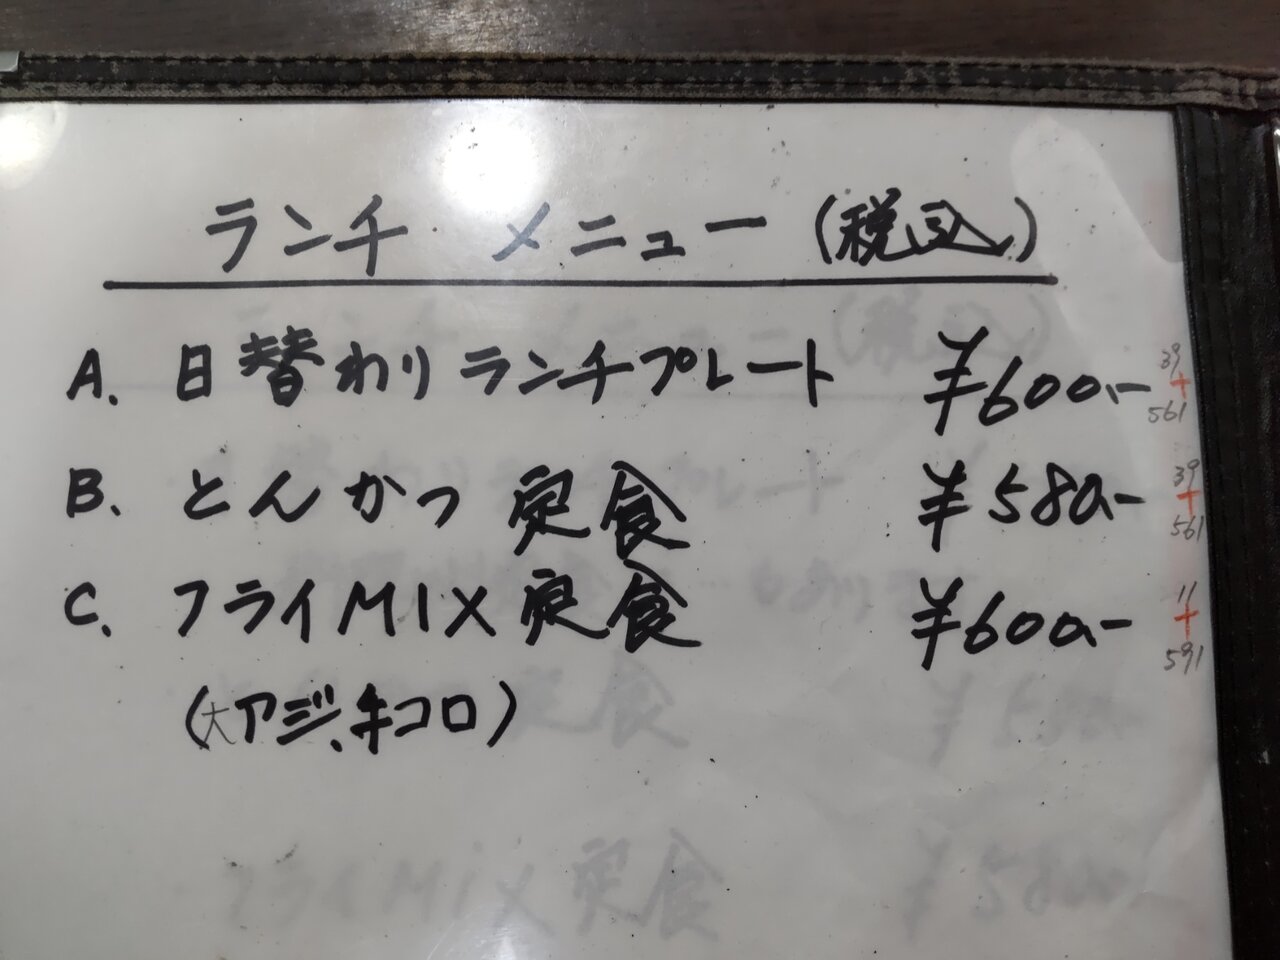 ランチ メニュー (税込)
A. 日替わりランチプレート ¥600.-
39
+
561
B. とんかつ定食 ¥580.-
39
+
561
C. フライMIX定食 ¥600.-
11
+
591
(大アジ、牛コロ)